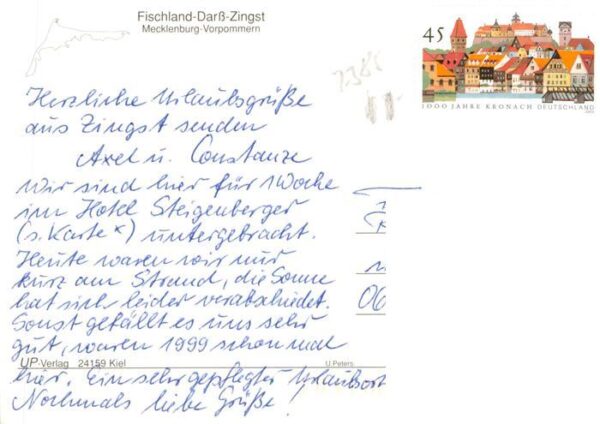 Fischland-Darß-Zingst
Mecklenburg-Vorpommern
45
1000 JAHRE KRONACH DEUTSCHLAND
Herzliche Urlaubsgrüße
aus Zingst senden
Axel u. Constanze
Wir sind hier für 1 Woche
im Hotel Steigenberger
(s. Karte x) untergebracht.
Heute waren wir nur
kurz am Strand, die Sonne
hat sich leider verabschiedet.
Sonst gefällt es uns sehr
gut, waren 1999 schon mal
UP-Verlag 24159 Kiel
U.Peters
hier. Ein sehr gepflegter Urlaubsort
Nochmals liebe Grüße!
06